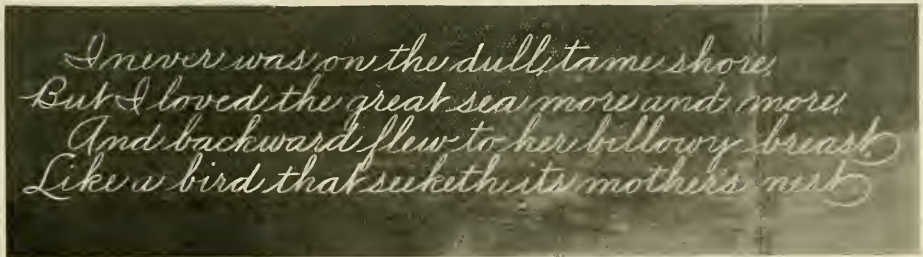 I never was on the dull, tame shore,
But I loved the great sea more and more,
And backward flew to her billowy breast
Like a bird that seeketh its mother's nest